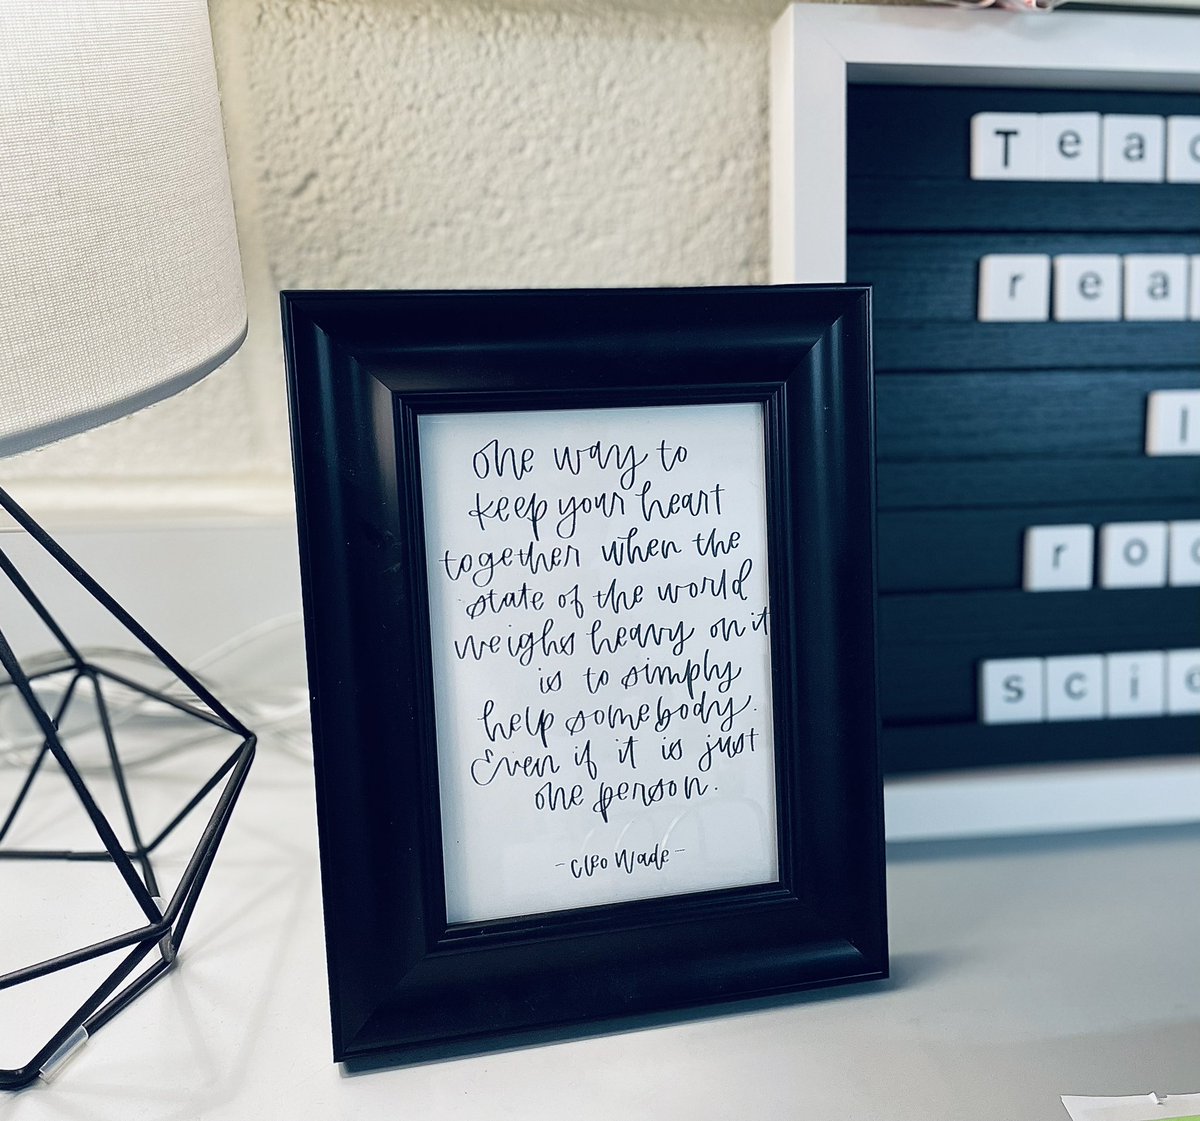 One way to
keep your heart
together when the
state of the world
weighs heavy on it
is to simply
help somebody.
Even if it is just
one person.
- Cleo Wade -
Teac
rea
I
roc
scie